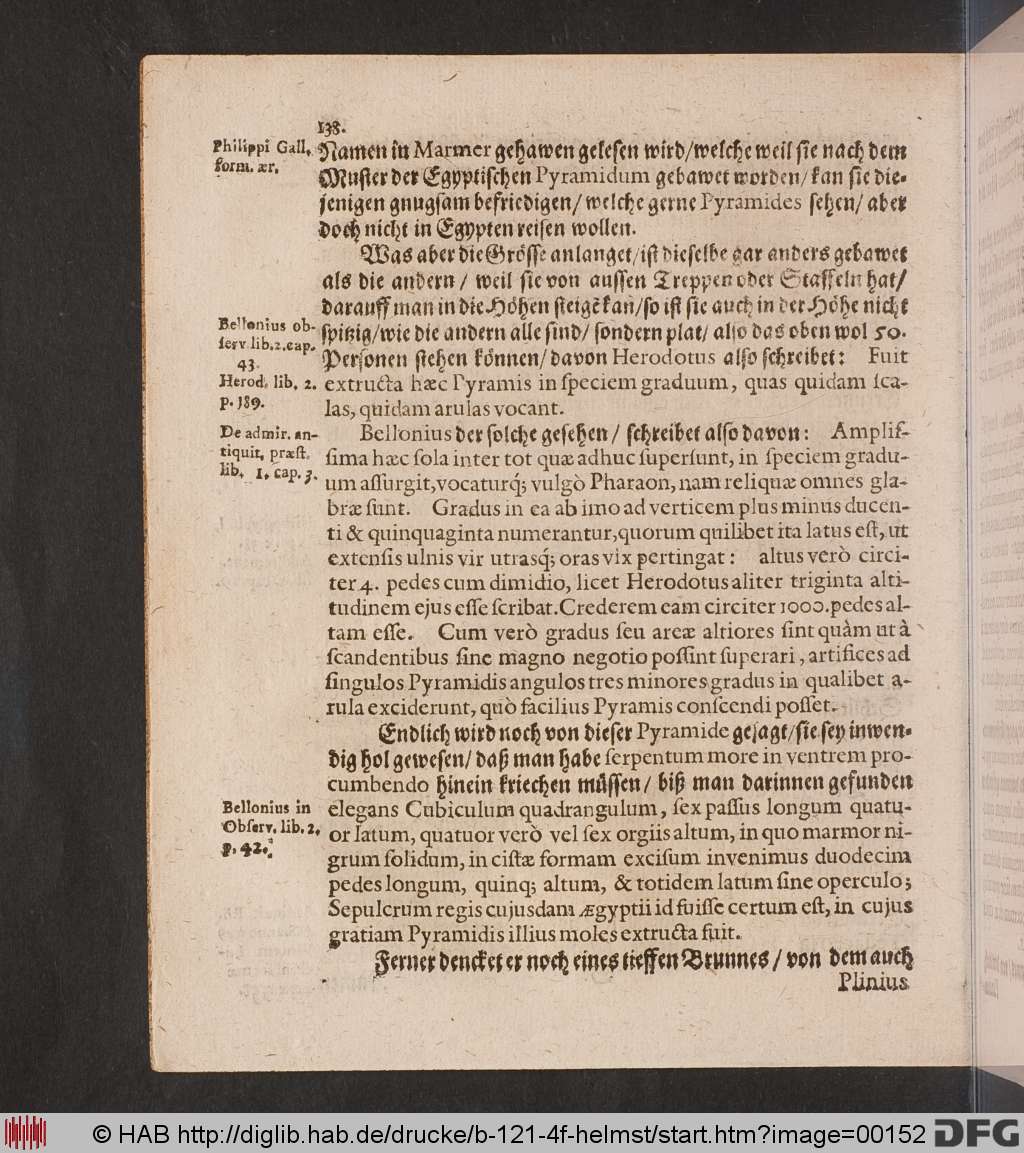 138.
Philippi Gall.
form. ær.
Namen in Marmer gehawen gelesen wird/welche weil sie nach dem
Muster der Egyptischen Pyramidum gebawet worden/ kan sie die-
jenigen gnugsam befriedigen/ welche gerne Pyramides sehen/ aber
doch nicht in Egypten reisen wollen.
Was aber die Grösse anlanget/ ist dieselbe gar anders gebawet
als die andern / weil sie von aussen Treppen oder Staffeln hat/
darauff man in die Höhen steigẽ kan/so ist sie auch in der Höhe nicht
Bellonius ob-
serv. lib. 2. cap.
43.
spitzig/wie die andern alle sind/ sondern plat/ also das oben wol 50.
Personen stehen können/ davon Herodotus also schreibet: Fuit
Herod. lib. 2.
p. 189.
extructa hæc Pyramis in speciem graduum, quas quidam sca-
las, quidam arulas vocant.
De admir. an-
tiquit. præst.
lib. 1. cap. 3.
Bellonius der solche gesehen / schreibet also davon: Amplis-
sima hæc sola inter tot quæ adhuc supersunt, in speciem gradu-
um assurgit, vocaturq; vulgò Pharaon, nam reliquæ omnes gla-
bræ sunt. Gradus in ea ab imo ad verticem plus minus ducen-
ti & quinquaginta numerantur, quorum quilibet ita latus est, ut
extensis ulnis vir utrasq́; oras vix pertingat: altus verò circi-
ter 4. pedes cum dimidio, licet Herodotus aliter triginta alti-
tudinem ejus esse scribat. Crederem eam circiter 1000. pedes al-
tam esse. Cum verò gradus seu areæ altiores sint quàm ut à
scandentibus sine magno negotio possint superari, artifices ad
singulos Pyramidis angulos tres minores gradus in qualibet a-
rula exciderunt, quò facilius Pyramis conscendi posset.
Endlich wird noch von dieser Pyramide gesagt/ sie sey inwen-
dig hol gewesen/ daß man habe serpentum more in ventrem pro-
cumbendo hinein kriechen müssen/ biß man darinnen gefunden
Bellonius in
Observ. lib. 2.
p. 42.
elegans Cubiculum quadrangulum, sex passus longum quatu-
or latum, quatuor verò vel sex orgiis altum, in quo marmor ni-
grum solidum, in cistæ formam excisum invenimus duodecim
pedes longum, quinq; altum, & totidem latum sine operculo;
Sepulcrum regis cujusdam Ægyptii id fuisse certum est, in cujus
gratiam Pyramidis illius moles extructa fuit.
Ferner dencket er noch eines tieffen Brunnes / von dem auch
Plinius
© HAB http://diglib.hab.de/drucke/b-121-4f-helmst/start.htm?image=00152 DFG